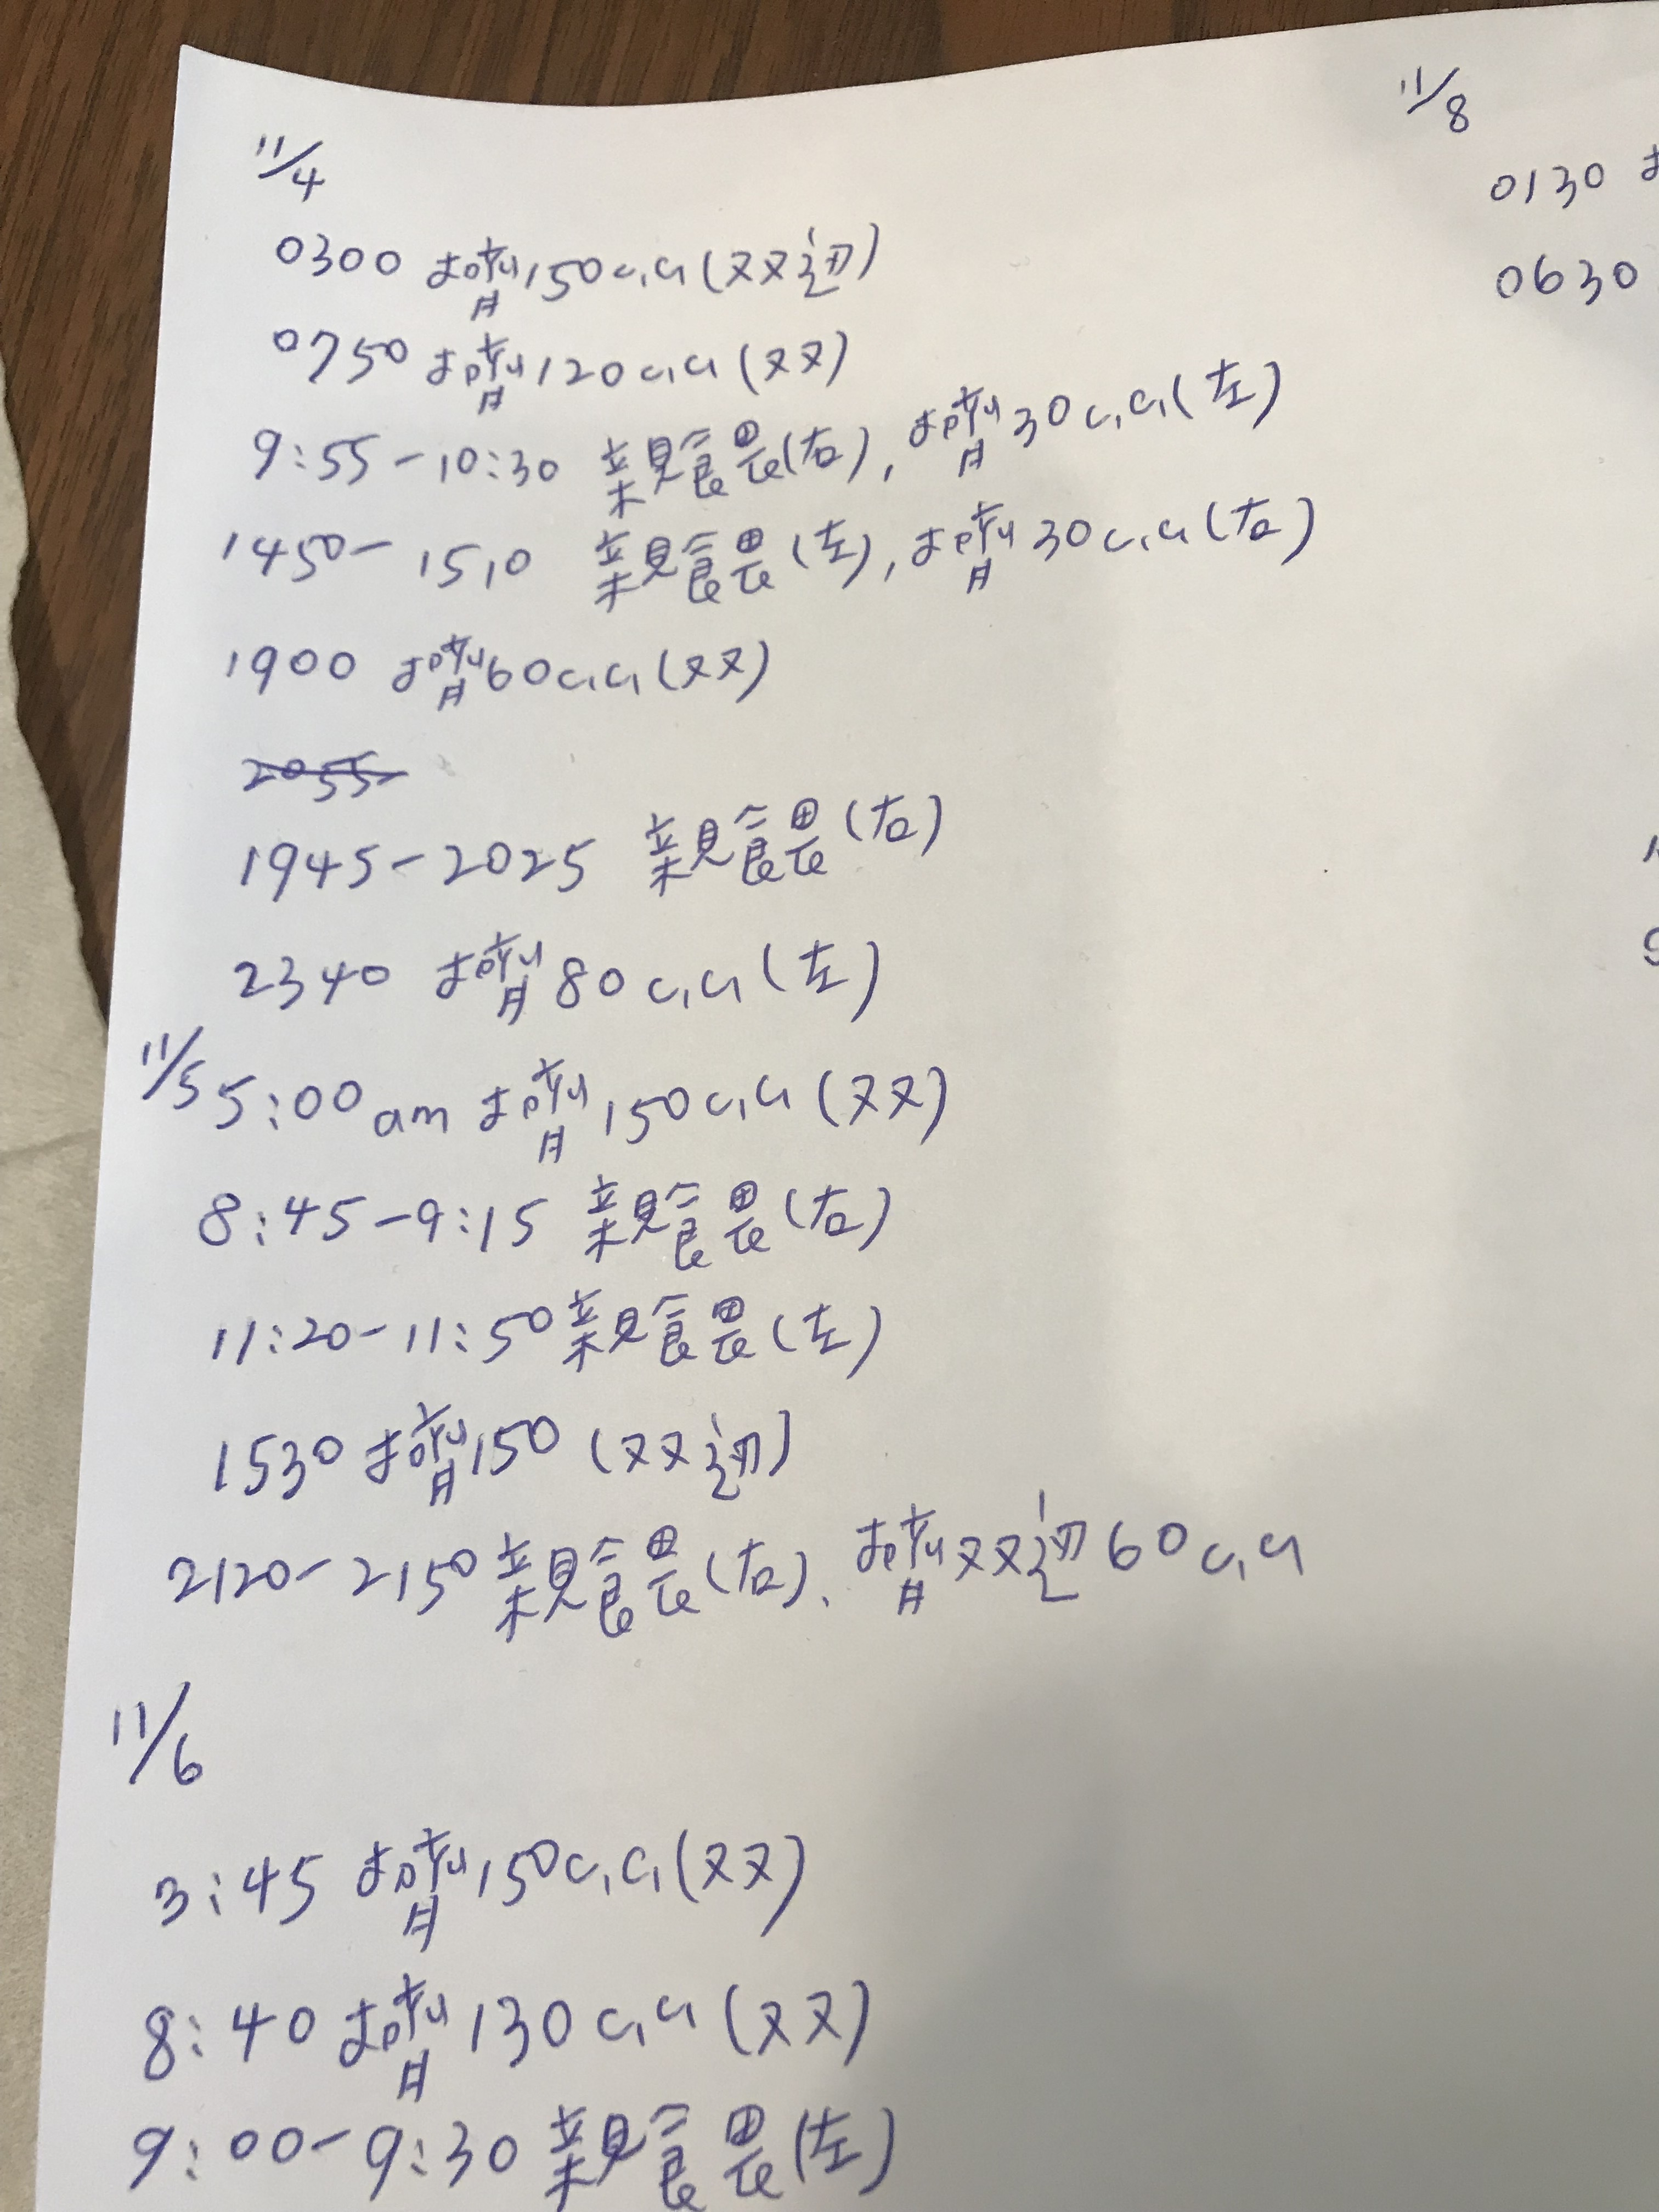 11/4
0300 擠150c.c.(双邊)
0750 擠120c.c.(双)
9:55-10:30 親餵(右),擠30c.c.(左)
1450-1510 親餵(左),擠30c.c.(右)
1900 擠60c.c.(双)
2055
1945-2025 親餵(右)
2340 擠80c.c.(左)
11/5 5:00am 擠150c.c.(双)
8:45-9:15 親餵(右)
11:20-11:50親餵(左)
1530 擠150(双邊)
2120-2150親餵(右)、擠双邊60c.c.
11/6
3:45 擠150c.c.(双)
8:40 擠130c.c.(双)
9:00-9:30 親餵(左)
11/8
0130
0630